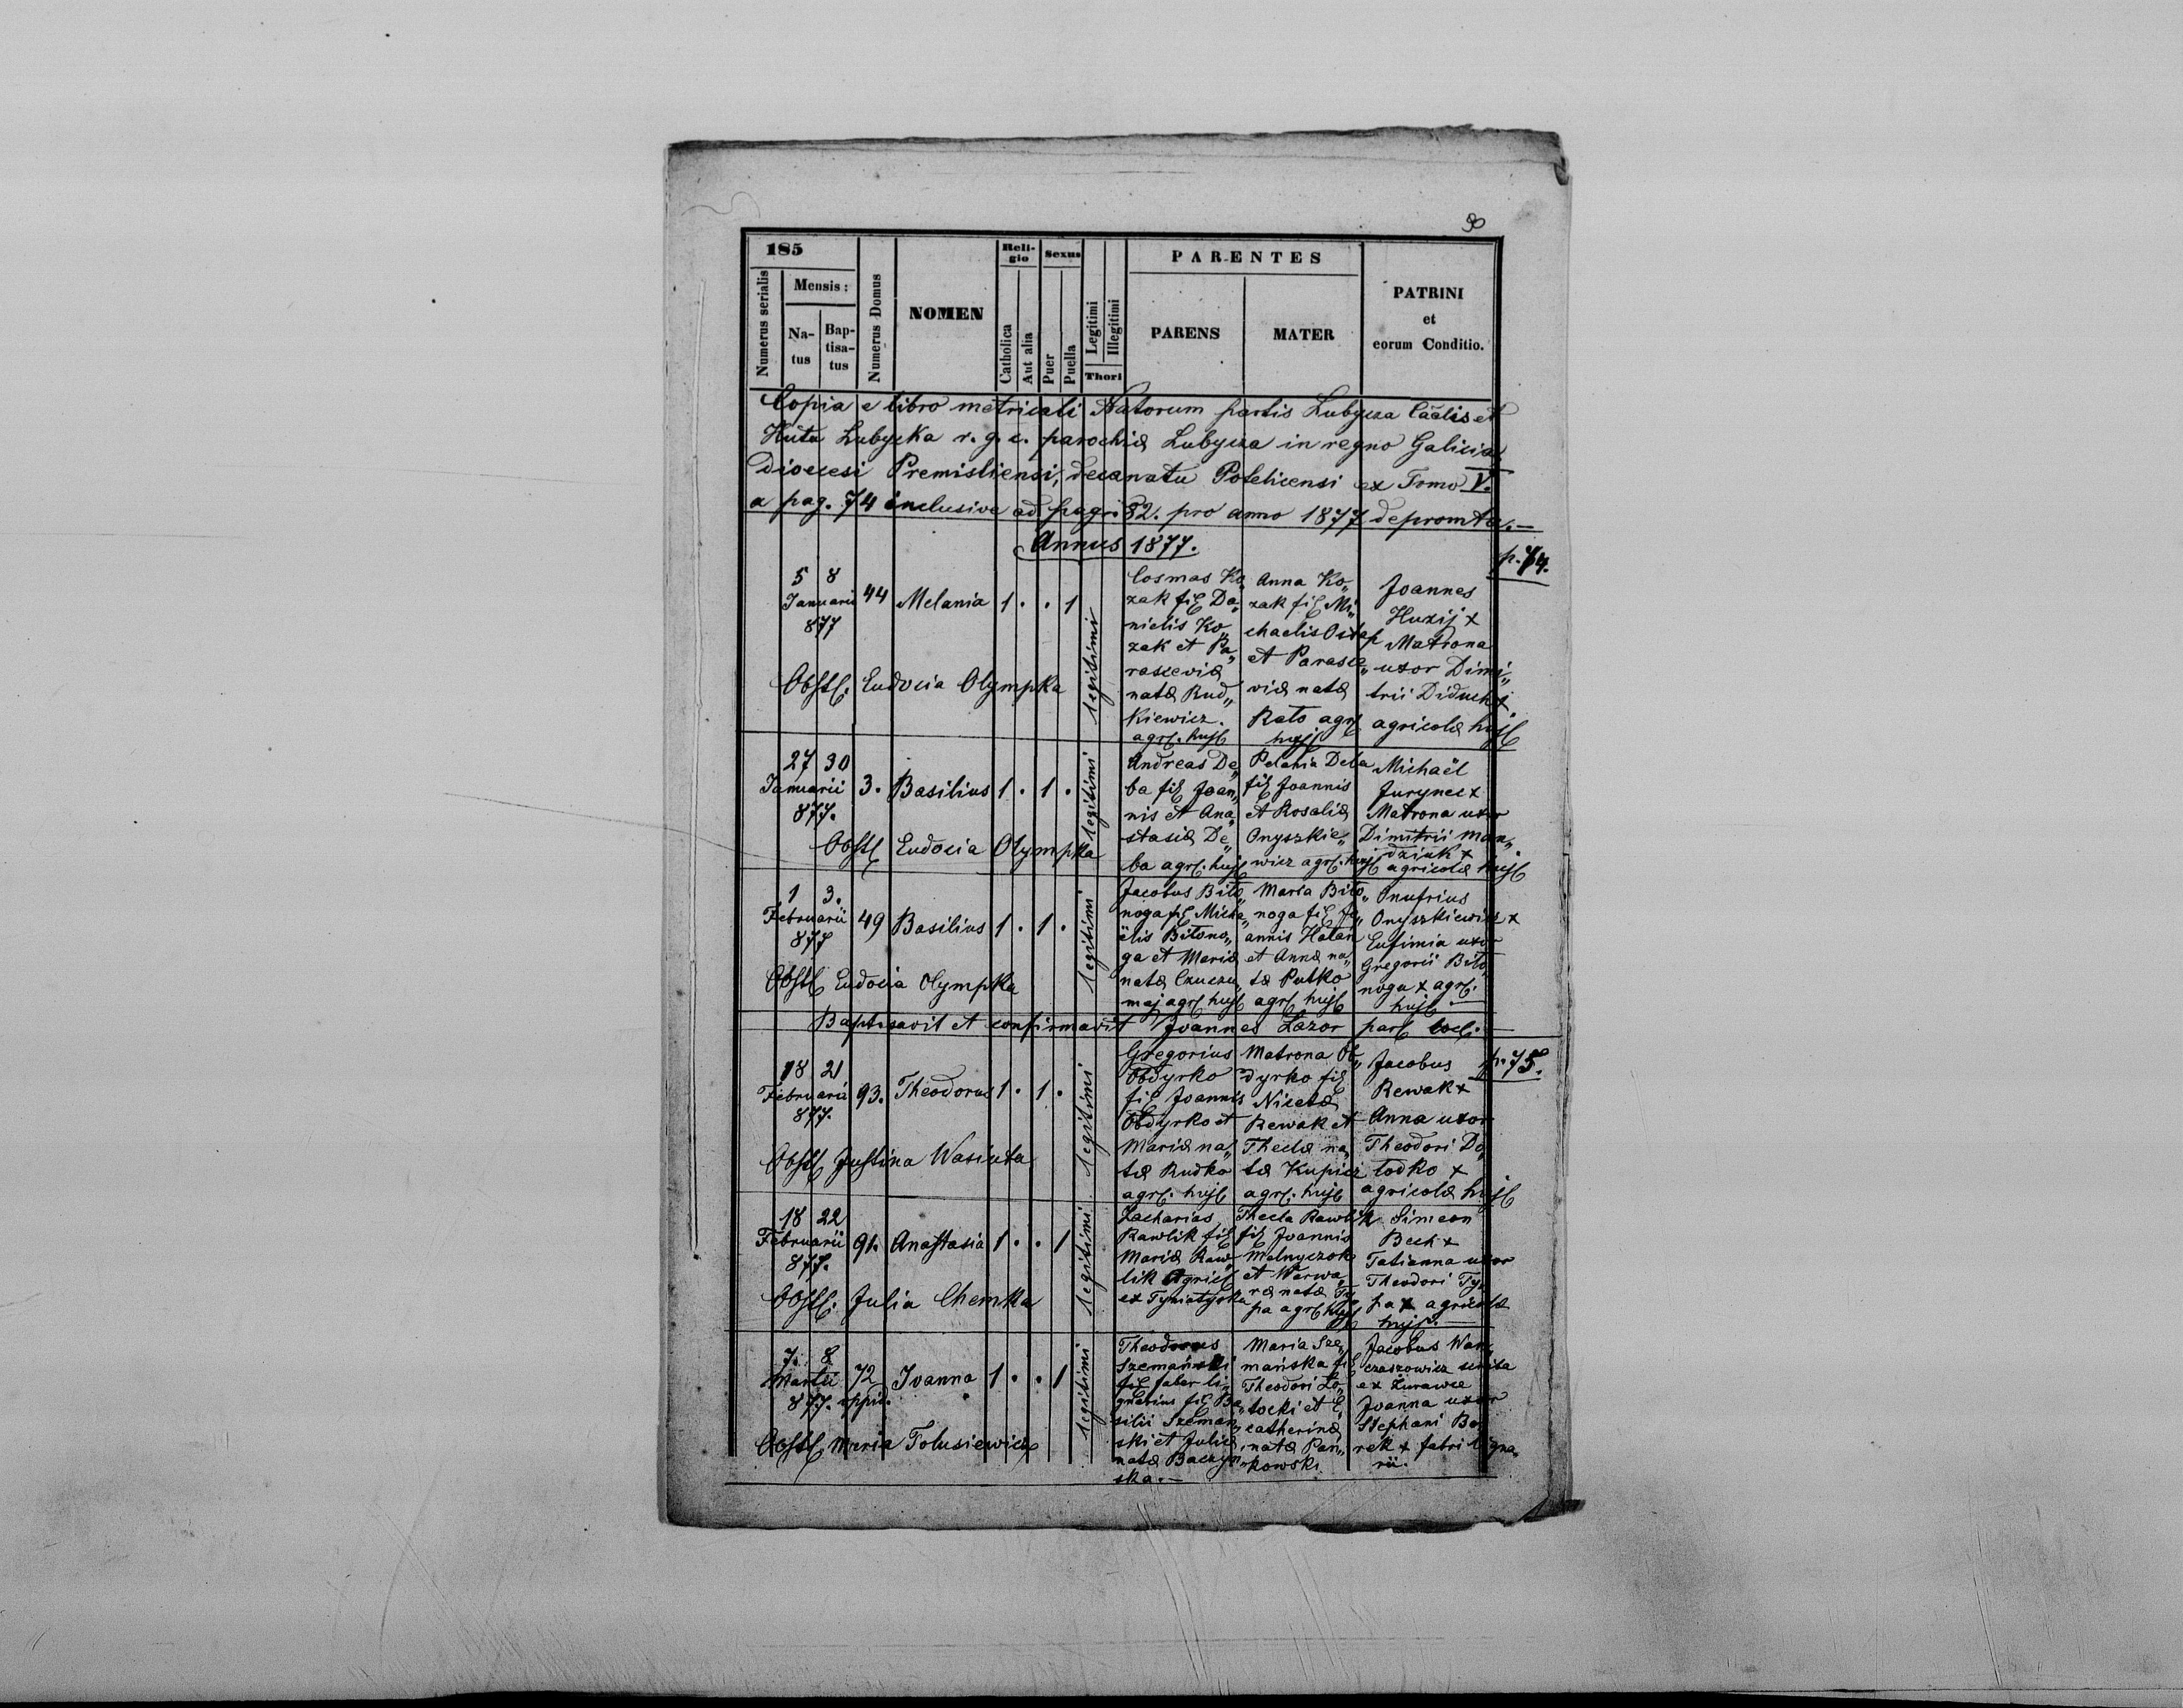 90
185
Numerus serialis
Mensis:
Na-
tus
Bap-
tisa-
tus
Numerus Domus
NOMEN
Reli-
gio
Catholica
Aut alia
Sexus
Puer
Puella
Legitimi
Illegitimi
Thori
PARENTES
PARENS
MATER
PATRINI
et
eorum Conditio.
Copia e libro metricali Natorum partis Lubycza et
Huta Lubycka r. g. c. parochiæ Lubycza in regno Galiciæ
Dioecesi Premisliensi, decanatu Potelicensi ex Tomo V.
a pag. 74 inclusive ad pagn 82. pro anno 1877 depromta.—
Annus 1877.
p. 74.
5 8
Januarii
877
44
Melania
1 . . 1
legitimi
Cosmas Ko„
zak fil Da„
nielis Ko„
zak et Pa„
rasceviæ
natæ Rud„
kiewicz.
agrl. hujl
Anna Ko„
zak fil Mi„
chaelis Ostap
et Parasce„
viæ natæ
Rato agrl
hujl
Joannes
Huzij x
Matrona
uxor Dimi„
trii Diduch x.
agricolæ hujl
Obstl. Eudocia Olympka
27 30
Januarii
877.
3.
Basilius
1 . 1 .
legitimi
Andreas De„
ba fil Joan„
nis et Ana„
stasiæ De„
ba agrl. hujl
Pelahia Deba
fil Joannis
et Rosaliæ
Onyszkie„
wicz agrl. hujl
Michaël
Jurynec x
Matrona uxor
Dimitrii Man„
dziuk x
agricolæ hujl
Obstl Eudocia Olympka
1 3.
Februarii
877
49
Basilius
1 . 1 .
legitimi
Jacobus Biło„
noga fil Micha„
ëlis Biłono„
ga et Mariæ
natæ Czuczu„
maj agrl hujl
Maria Biło„
noga fil Jo„
annis Hałan
et Annæ na„
tæ Putko
agrl hujl
Onufrius
Onyszkiewicz x
Eufimia uxor
Gregorii Biło„
noga x agrl.
hujl
Obstl Eudocia Olympka
Baptisavit et confirmavit Joannes Lazor parl locl.
p. 75.
18 21
Februarii
877.
93.
Theodorus
1 . 1 .
legitimi
Gregorius
Obdyrko
fil Joannis
Obdyrko et
Mariæ na„
tæ Rudko
agrl. hujl
Matrona Ob„
dyrko fil
Nicetæ
Rewak et
Theclæ na„
tæ Kupicz
agrl. hujl
Jacobus
Rewak x
Anna uxor
Theodori Do„
łodko x
agricolæ hujl
Obstl Justina Wasiuta
18 22
Februarii
877.
91.
Anastasia
1 . . 1
legitimi
Zacharias
Rawlik fil
Mariæ Raw„
lik Agricl
ex Tyniatyska
Thecla Rawlik
fil Joannis
Melnyczok
et Warwa„
ræ natæ Ty„
pa agrl hujl
Simeon
Bech x
Tatianna uxor
Theodori Ty„
pa x agricolæ
hujl.
Obstl. Julia Chemka
7. 8
Martii
877. oppid.
72
Joanna
1 . . 1
legitimi
Theodorus
Szemański
fil faber li„
gnarius fil Ba„
silii Szemań„
ski et Juliæ
natæ Baczyń„
ska.—
Maria Sze„
mańska fil
Theodori Ło„
tocki et C„
catherinæ
natæ Pań„
kowski
Jacobus Wań„
czaszowicz scriba
ex Żurawce
Joanna uxor
Stephani Bo„
rek x fabri ligna„
rii.
Obstl Maria Tolusiewicz